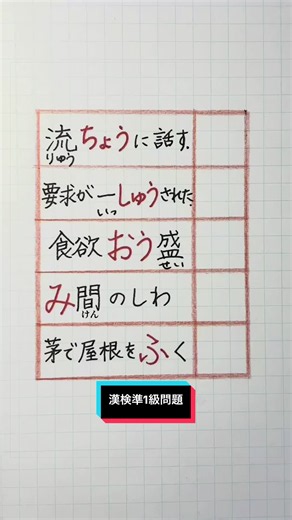 流ちょうに話す.
りゅう
要求が一しゅうされた.
いっ
食欲おう盛
せい
み間のしわ
けん
茅で屋根をふく
漢検準1級問題